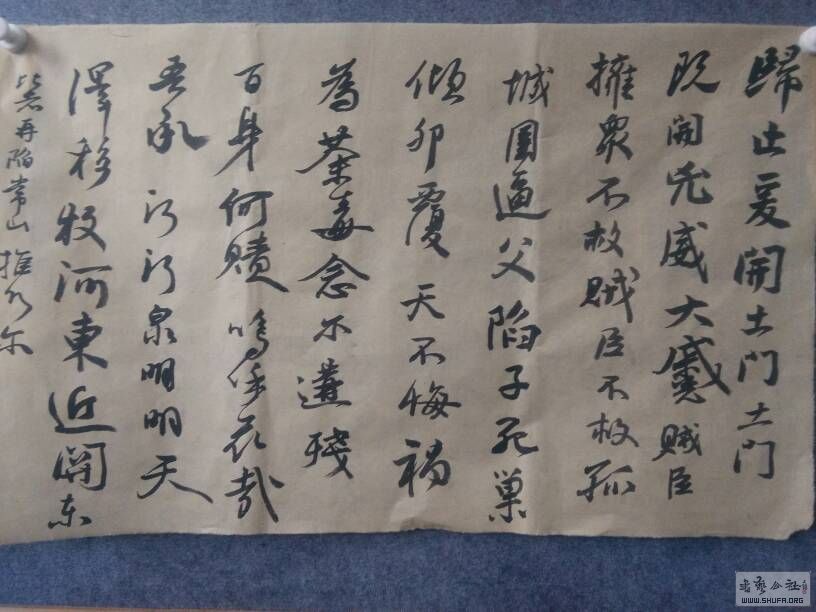 歸止爰開土門土門
既開兇威大蹙賊臣
擁衆不救賊臣不救孤
城圍逼父陷子死巢
傾卵覆天不悔禍
為荼毒念尔遘殘
百身何贖嗚呼哀哉
吾承行行泉明明天
澤移牧河東近開東
再陷常山尔
書藝公社
WWW.SHUFA.ORG